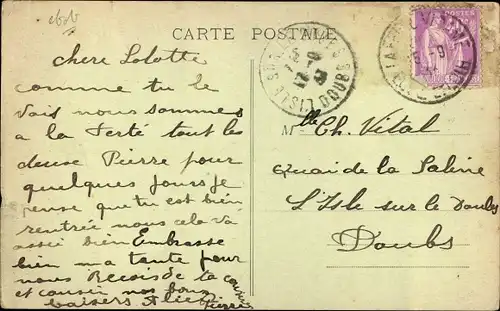 CARTE POSTALE
chere Lolotte
comme tu le
vois nous sommes
a la Ferté tout les
deuse Pierre pour
quelques jours je
pense que tu est bien
rentrée nous cela va
assée bien Embrasse
bien ma tante pour
nous Recois de la cousine
et cousin nos bons
baisers Alice Pierre
Mlle Ch. Vital
Quai de la Saline
L'Isle sur le Doubs
Doubs
POSTES
DOUBS